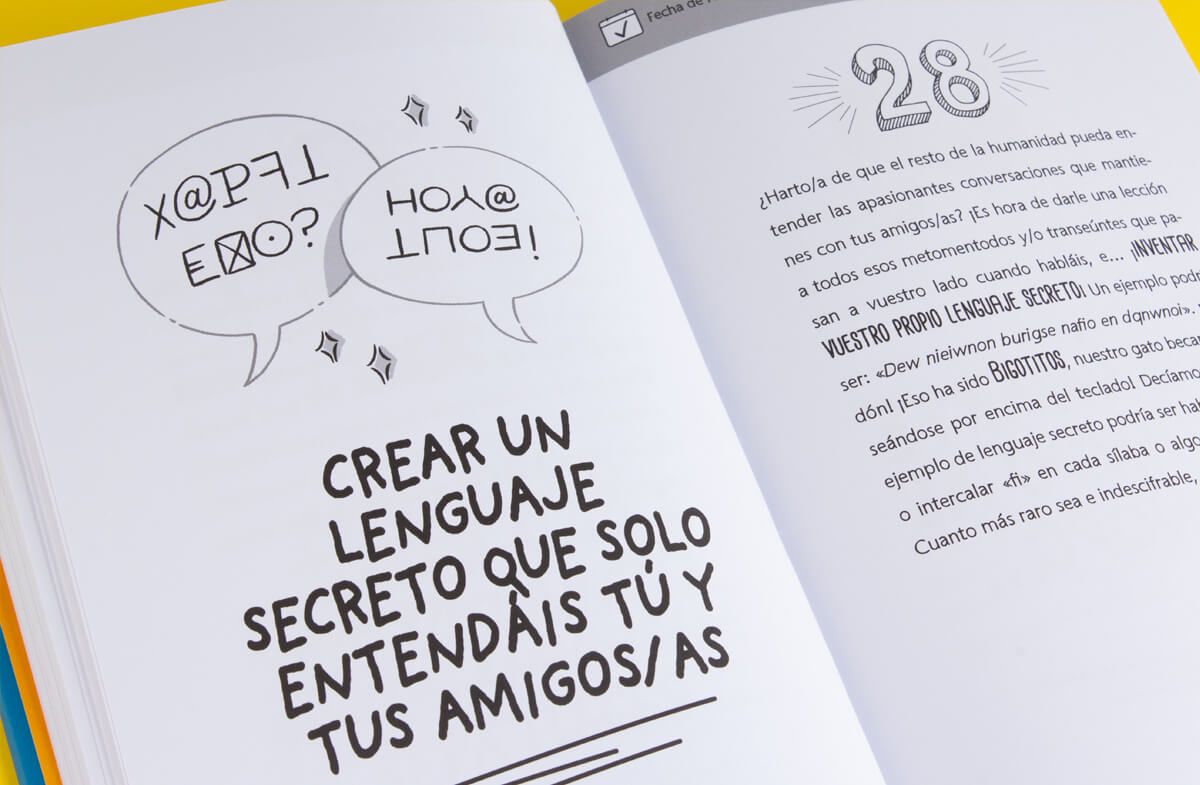 CREAR UN
LENGUAJE
SECRETO QUE SOLO
ENTENDÁIS TÚ Y
TUS AMIGOS/AS
Fecha de
28
¿Harto/a de que el resto de la humanidad pueda en-
tender las apasionantes conversaciones que mantie-
nes con tus amigos/as? ¡Es hora de darle una lección
a todos esos metomentodos y/o transeúntes que pa-
san a vuestro lado cuando habláis, e... ¡INVENTAR
VUESTRO PROPIO LENGUAJE SECRETO! Un ejemplo
ser: «Dew nieiwnon burigse nafio en dqnwnoi».
dón! ¡Eso ha sido BIGOTITOS, nuestro gato
seándose por encima del teclado!
ejemplo de lenguaje secreto podría ser
o intercalar «fi» en cada sílaba o algo
Cuanto más raro sea e indescifrable,